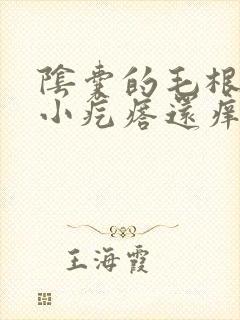 陰囊的毛根
小疙瘩還癢
王海霞